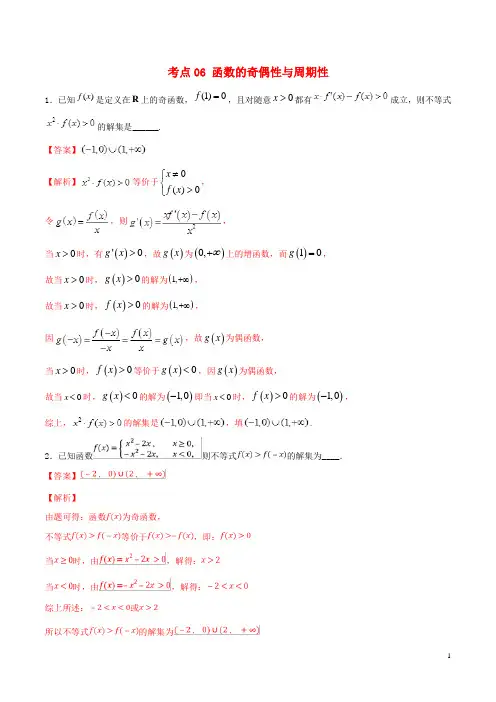 考点06 函数的奇偶性与周期性
1．已知f(x)是定义在R上的奇函数，f(1)=0，且对随意x>0都有x·f'(x)−f(x)>0成立，则不等式
x²·f(x)>0的解集是______．
【答案】(−1,0)∪(1,+∞)
【解析】x²·f(x)>0等价于{x≠0 f(x)>0，
令g(x)=f(x)/x，则g'(x)=(xf'(x)−f(x))/x²，
当x>0时，有g'(x)>0，故g(x)为(0,+∞)上的增函数，而g(1)=0，
故当x>0时，g(x)>0的解为(1,+∞)，
故当x>0时，f(x)>0的解为(1,+∞)，
因g(−x)=f(−x)/−x=f(x)/x=g(x)，故g(x)为偶函数，
当x>0时，f(x)>0等价于g(x)<0，因g(x)为偶函数，
故当x<0时，g(x)<0的解为(−1,0)即当x<0时，f(x)>0的解为(−1,0)，
综上，x²·f(x)>0的解集是(−1,0)∪(1,+∞)，填(−1,0)∪(1,+∞)．
2．已知函数f(x)={x²−2x, x≥0, −x²−2x, x<0,则不等式f(x)>f(−x)的解集为____．
【答案】(−2，0)∪(2，+∞)
【解析】
由题可得：函数f(x)为奇函数，
不等式f(x)>f(−x)等价于f(x)>−f(x)，即：f(x)>0
当x≥0时，由f(x)=x²−2x>0，解得：x>2
当x<0时，由f(x)=−x²−2x>0，解得：−2<x<0
综上所述：−2<x<0或x>2
所以不等式f(x)>f(−x)的解集为(−2，0)∪(2，+∞)
1